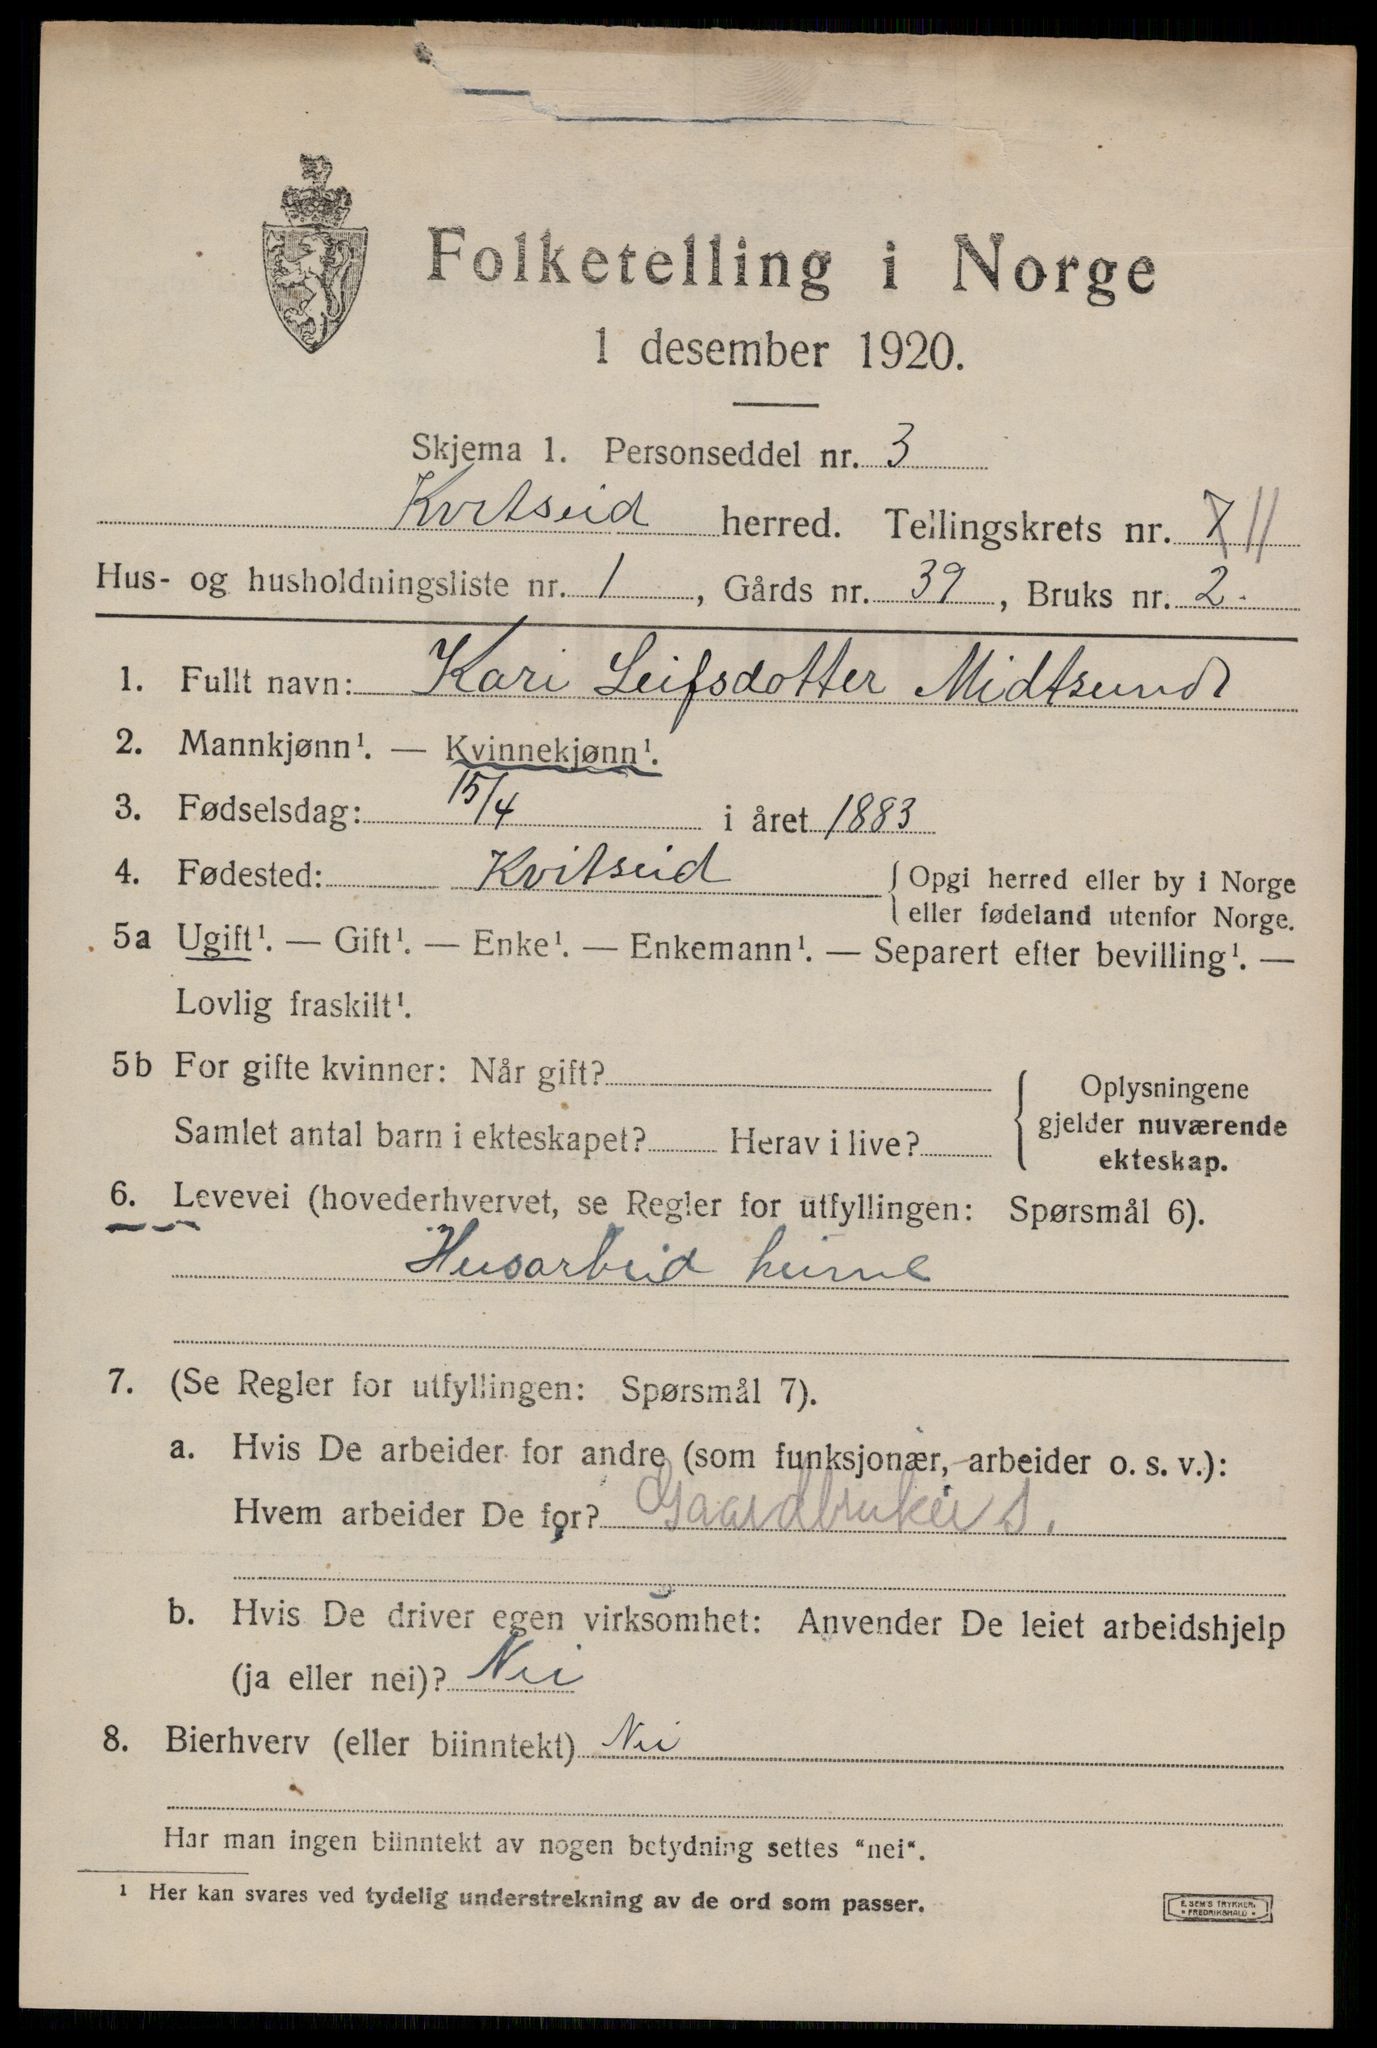 Folketelling i Norge
1 desember 1920.
Skjema 1. Personseddel nr. 3
Kvitseid herred. Tellingskrets nr. 7 11
Hus- og husholdningsliste nr. 1, Gårds nr. 39, Bruks nr. 2.
1. Fullt navn: Kari Leifsdotter Midtsund
2. Mannkjønn¹. — Kvinnekjønn¹.
3. Fødselsdag: 15/4 i året 1883
4. Fødested: Kvitseid { Opgi herred eller by i Norge
eller fødeland utenfor Norge.
5a Ugift¹. — Gift¹. — Enke¹. — Enkemann¹. — Separert efter bevilling¹. —
Lovlig fraskilt¹.
5b For gifte kvinner: Når gift?
Samlet antal barn i ekteskapet? Herav i live?
Oplysningene
gjelder nuværende
ekteskap.
6. Levevei (hovederhvervet, se Regler for utfyllingen: Spørsmål 6).
Husarbeid heime
7. (Se Regler for utfyllingen: Spørsmål 7).
a. Hvis De arbeider for andre (som funksjonær, arbeider o. s. v.):
Hvem arbeider De for? Gaardbruker s.
b. Hvis De driver egen virksomhet: Anvender De leiet arbeidshjelp
(ja eller nei)? Nei
8. Bierhverv (eller biinntekt) Nei
Har man ingen biinntekt av nogen betydning settes "nei".
¹ Her kan svares ved tydelig understrekning av de ord som passer.
E. SEM'S TRYKKERI
• FREDRIKSHALD •